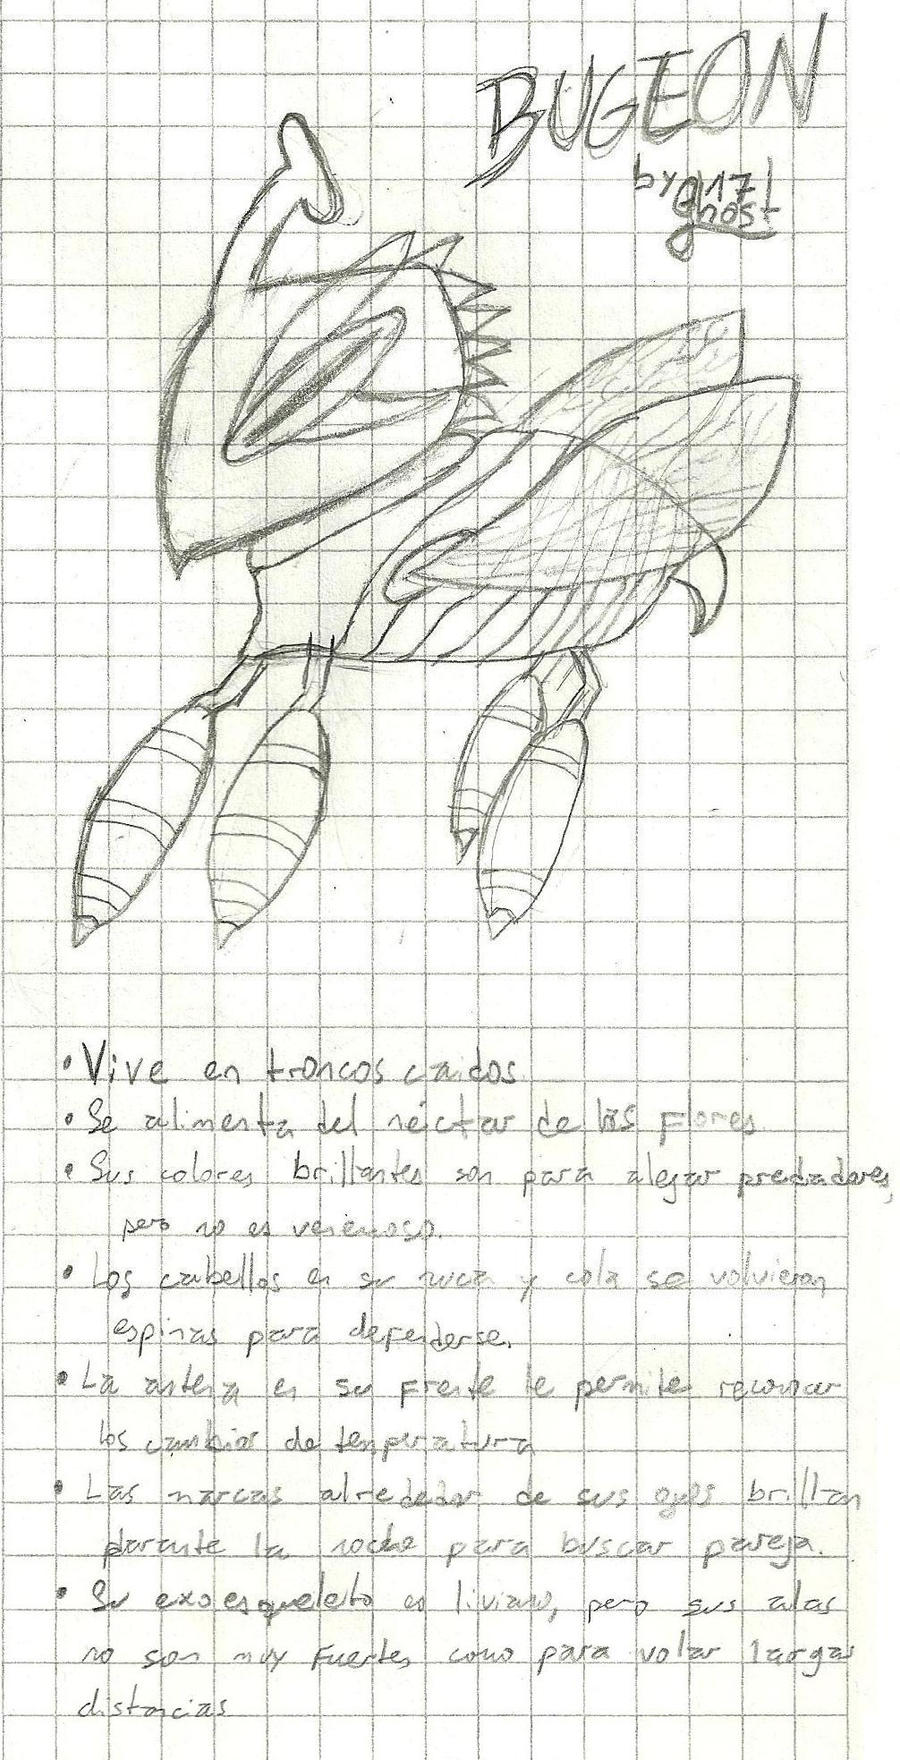 BUGEON
by gh17
ghost
• Vive en troncos caidos
• Se alimenta del néctar de las flores
• Sus colores brillantes son para alejar predadores,
pero no es venenoso.
• Los cabellos en su nuca y cola se volvieron
espinas para defenderse.
• La antena en su frente le permite reconocer
los cambios de temperatura
• Las marcas alrededor de sus ojos brillan
durante la noche para buscar pareja.
• Su exoesqueleto es liviano, pero sus alas
no son muy fuertes como para volar largas
distancias